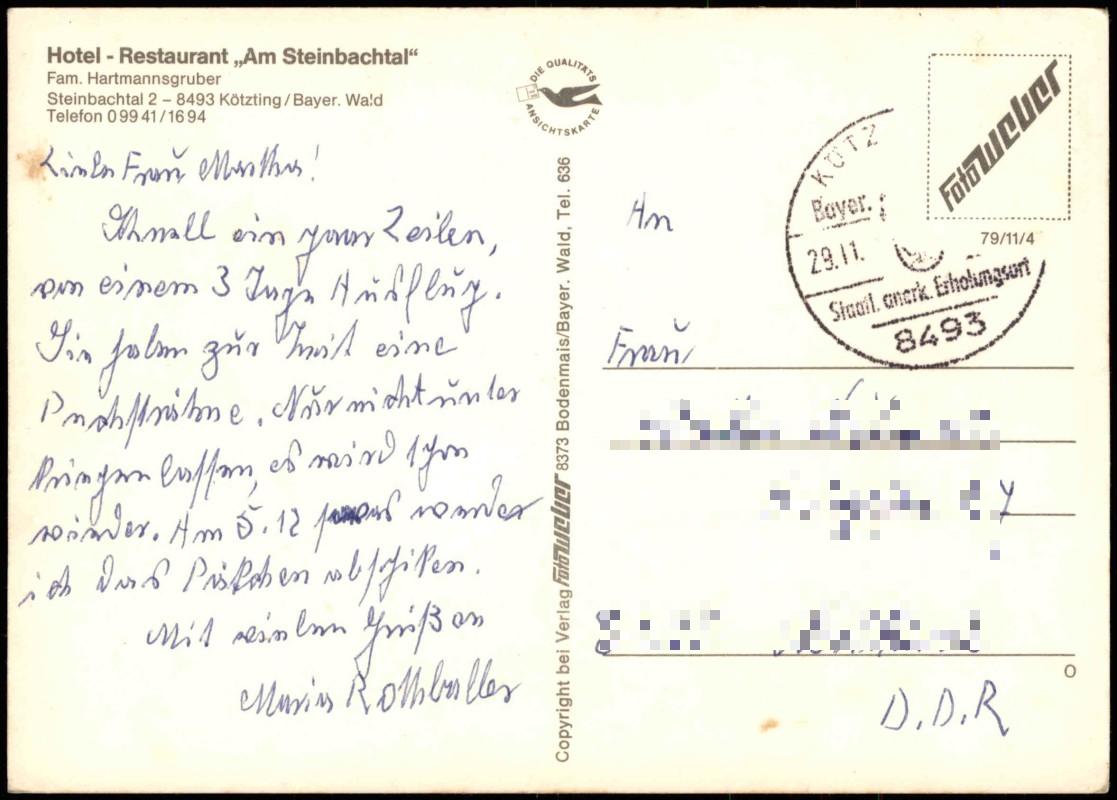 Hotel - Restaurant „Am Steinbachtal“
Fam. Hartmannsgruber
Steinbachtal 2 – 8493 Kötzting / Bayer. Wald
Telefon 0 99 41 / 16 94
DIE QUALITÄTS
ANSICHTSKARTE
Liebe Frau Martha!
Schnell ein paar Zeilen,
von einem 3 Tage Ausflug.
Sie haben zur Zeit eine
Pechsträhne. Nur nicht unter
kriegen lassen, es wird schon
wieder. Am 5.12 werde
ich das Päkchen abschiken.
Mit vielen Grüßen
Maria Rothballer
Copyright bei Verlag Foto Weber 8373 Bodenmais/Bayer. Wald, Tel. 636
Foto Weber
79/11/4
KÖTZ
Bayer.
29.11.
Staatl. anerk. Erholungsort
8493
An
Frau
D.D.R